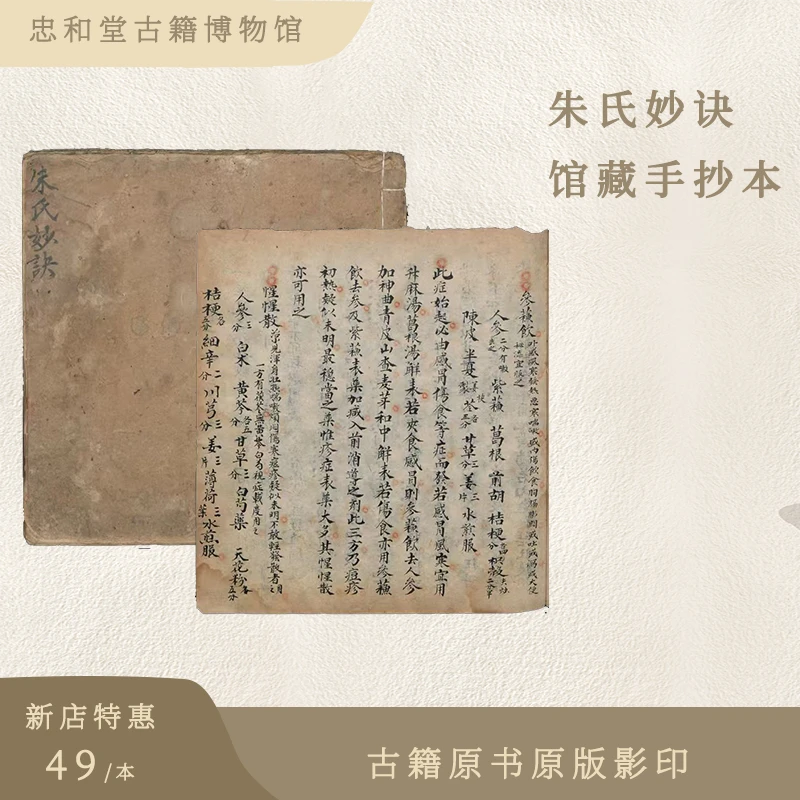 忠和堂古籍博物馆
朱氏妙诀
馆藏手抄本
朱氏妙訣
參蘇飲
人參 紫蘇 葛根 前胡 桔梗
陳皮 半夏 甘草 姜 水煎服
此症始起必由感冒傷食等症而發若感冒風寒宜用
升麻湯葛根湯解表若夾食感冒則參蘇飲去人參
加神曲青皮山查麦芽和中解表若傷食亦用參蘇
飲去參及紫蘇表藥加咸入前消導之剂此三方乃痘疹
初熱疑似未明最穩當之藥惟疹症表藥大多其惺惺散
亦可用之
惺惺散
人參 白朮 黄芩 甘草 白芍藥 天花粉
桔梗 細辛 川芎 姜三片 薄荷三葉 水煎服
新店特惠
49/本
古籍原书原版影印